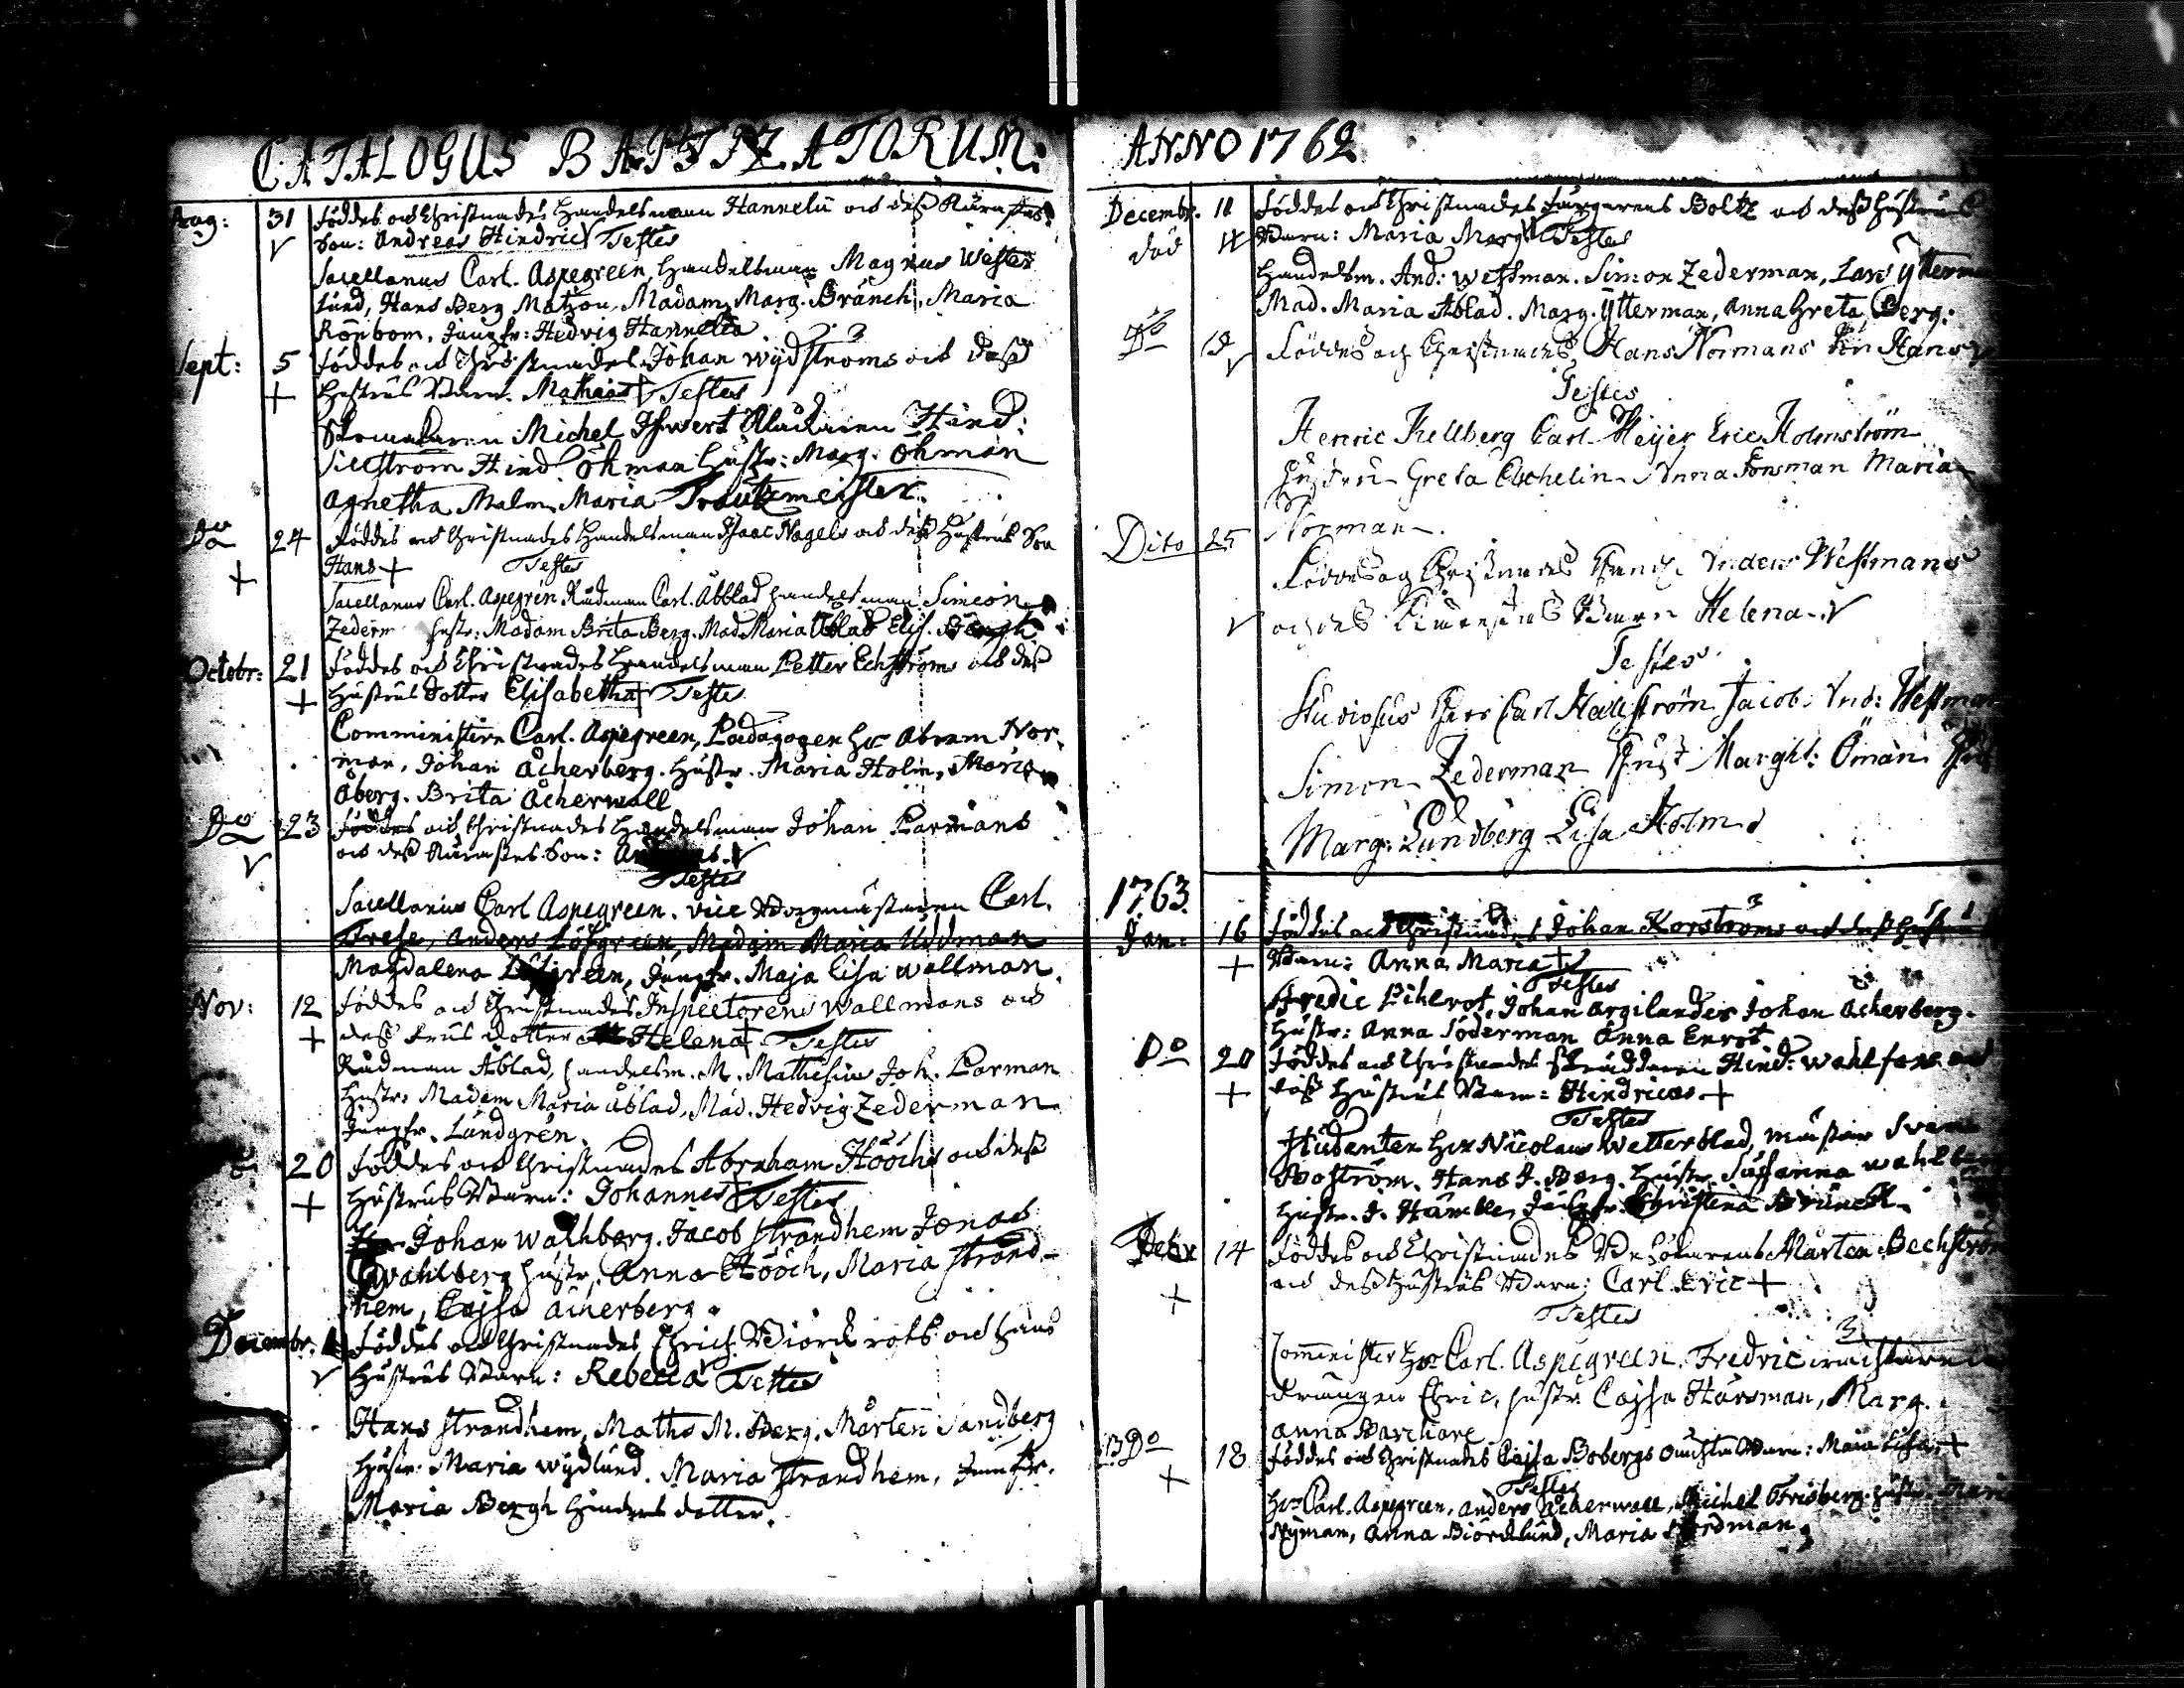 CATALOGUS BAPTIZATORUM.
Aug: 31 föddes och Christnades Handelsman Hannelii och dess Kärastes
Son: Andreas Hindric Testes
Sacellanus Carl. Aspegreen, Handelsman Magnus Wester
lund, Hans Berg Matzon, Madam Marg. Bränch, Maria
Rönbom, Jungfr: Hedvig Hannelia
Sept: 5 föddes och Christnades Johan Wydströms och dess
+ Hustrus Barn. Mathias Testes
Skomakaren Michel Hind:
Hind Öhman Hustr: Marg. Öhman
Agnetha Malm, Maria Trautzmeister.
Do 24 föddes och Christnades Handelsman Isaac Nagels och dess Hustrus Son
+ Hans + Testes
Sacellanus Carl. Aspegrén Rådman Carl. Åbblad handelsman Simeon
Zederm hustr: Madam Brita Berg. Mad. Maria Åblad Elis.
Octobr: 21 föddes och Christnades Handelsman Petter Echströms och dess
+ Hustrus Dotter Elisabetha Testes
Comministern Carl. Aspegreen, Pædagogen Hr Abram Nor-
man, Johan Åcherberg. Hustr. Maria Holm, Maria
Åberg. Brita Åcherwall
Do 23 föddes och Christnades Handelsman Johan Parmans
och dess Kärastes Son:
Testes
Sacellanus Carl Aspegreen. vice Borgmästaren Carl.
Frese, Anders Löfgreen, Madam Maria Uddman
Magdalena Löfgreen, Jungfr. Maja Lisa Wallman.
Nov: 12 föddes och Christnades Inspectorens Wallmans och
+ dess Frus dotter Helena + Testes
Rådman Åblad, handelsm. M. Mathesius Joh. Parman
Hustr: Madam Maria Åblad, Mad. Hedvig Zederman
Jungfr. Lundgrén.
20 föddes och Christnades Abraham Hööchs och dess
+ Hustrus Barn: Johannes Testes
Johan Wahlberg. Jacob Strandhem Jonas
Wahlberg hustr. Anna Hööch, Maria Strand-
hem, Cajsa Åcherberg.
Decembr. föddes och Christnades Chrich. Biörck rots och hans
Hustrus Barn: Rebecca Testes
Hans Strandhem, Maths M. Berg. Mårten Sandberg
Hustr: Maria Wydlund. Maria Strandhem, Jungfr.
Maria Bergh dotter.
ANNO 1762
Decembr. 11 föddes och Christnades färgarens Boltz och dess Hustrus
död Barn: Maria Marg. Testes
Handelsm. And: Westman. Simon Zederman, Lars Ytterman
Mad. Maria Åblad. Marg. Ytterman, Anna Greta Berg:
Do föddes och Christnades Hans Normans Son Hans
Testes
Henric Kellberg Carl Meijer Eric Holmström
Hustru Greta Maria
Norman
Dito 25 föddes och Christnades Anders Westmans
och des Barn Helena
Testes
Studiosus Herr Carl Hallström Jacob And: Westman
Simon Zederman Hust Marght: Öman
Marg: Lundberg Lisa Holm
1763.
Jan: 16 föddes och Christnades Johan Korströms och dess Hustrus
+ Barn: Anna Maria +
Testes
Fredic Johan Argilander Johan Åcherberg.
Hustr: Anna Söderman Anna Enrot.
Do 20 föddes och Christnades Skräddaren Hind: Wahlfors och
+ dess Hustrus Barn: Hindricus +
Testes
Studenten Herr Nicolaus Wetterblad, Mästar Sven
Boström. Hans J. Berg. Hustr. Susanna Wahlberg
Hustr. J. Jungfr. Christina
Febr 14 föddes och Christnades Besökarens Mårten Bechström
+ och dess Hustrus Barn: Carl Eric +
Testes
Comminister Hr Carl. Aspegreen. Fredric
drängen Chric, hustr. Cajsa Harsman, Marg.
Anna
Do 18 föddes och Christnades Cajsa Bobergs Barn: Maia Lisa. +
+ Testes
Hr Carl. Aspegreen, Anders Åcherwall, Michel Frisberg. hustr.
Nyman, Anna Biörcklund, Maria Nordman,